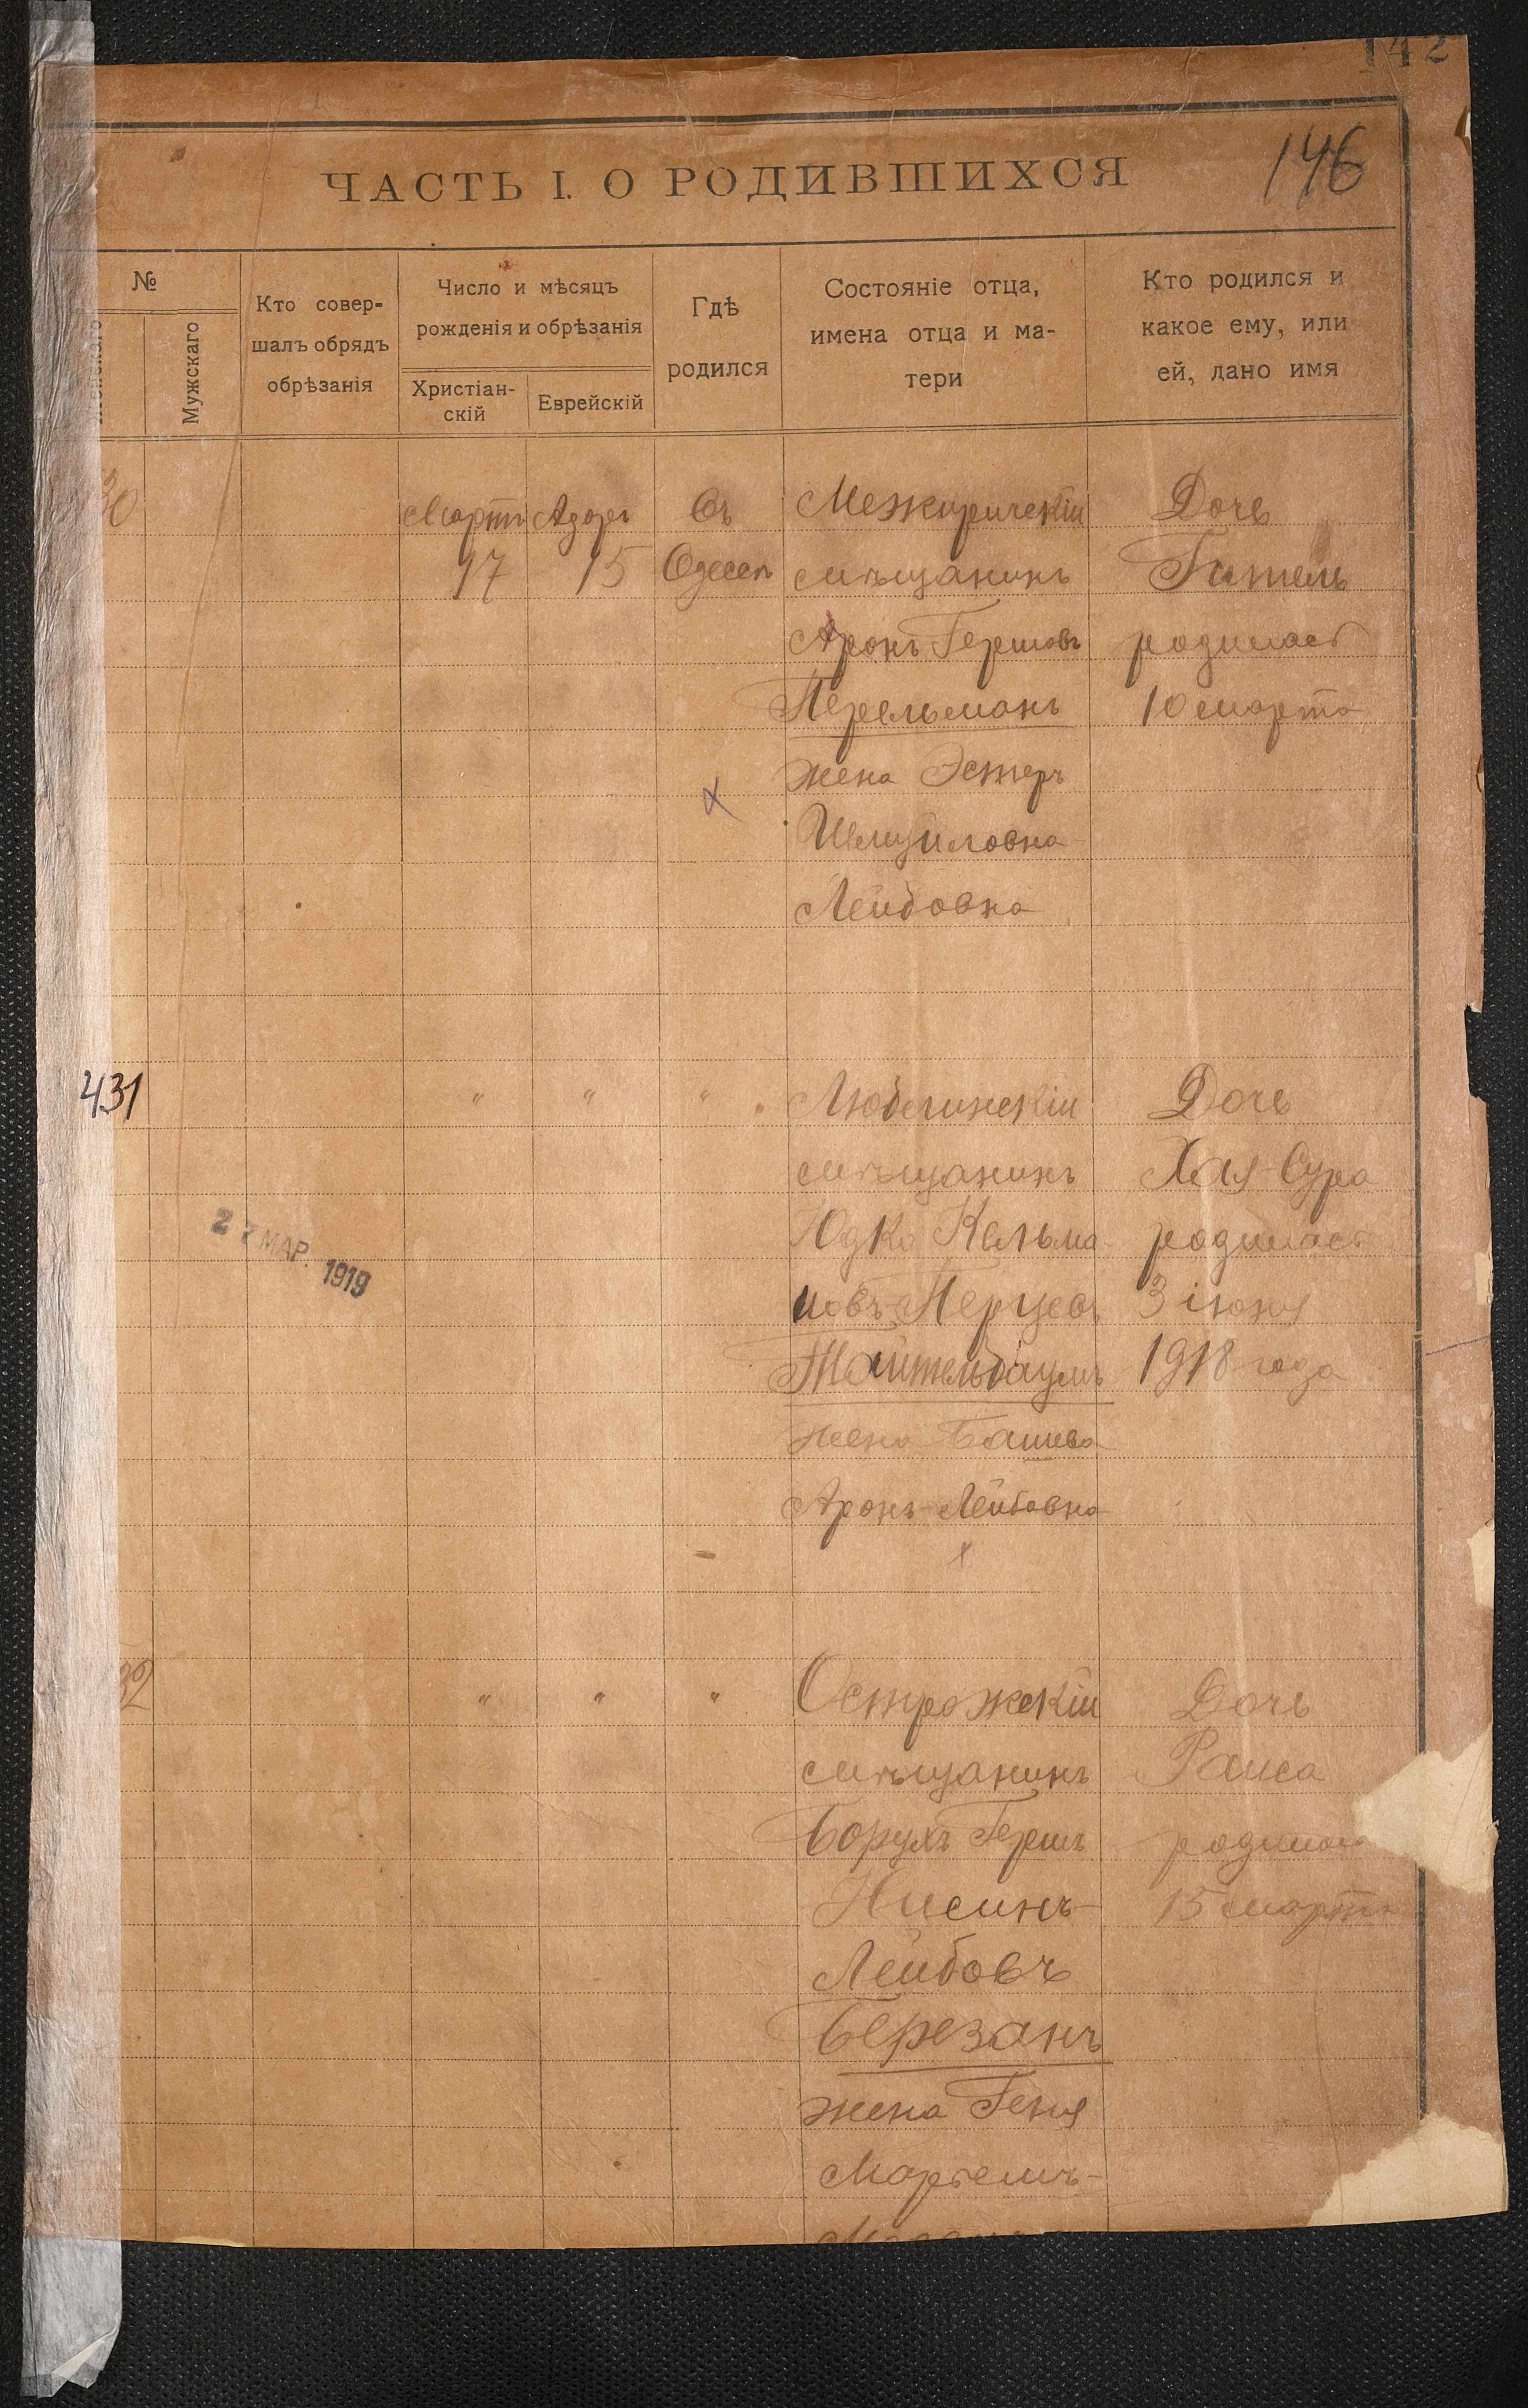 142
146
ЧАСТЬ I. О РОДИВШИХСЯ
№
Мужскаго
Кто совер-
шалъ обрядъ
обрѣзанія
Число и мѣсяцъ
рожденія и обрѣзанія
Христіан-
скій
Еврейскій
Гдѣ
родился
Состояніе отца,
имена отца и ма-
тери
Кто родился и
какое ему, или
ей, дано имя
30 Мартъ Адаръ Въ Межиричскій Дочь
17 15 Одессѣ мѣщанинъ Гитель
Аронъ Гершовъ родилась
Перельманъ 10 марта
жена Эстеръ
Шмуйловна
Лейбовна
431 " " " Любелинскій Дочь
мѣщанинъ Хая-Сура
Юдко Кельма- родилась
новъ-Перцевъ 3 іюня
Тайтельбаумъ 1918 года
жена Башева
Аронъ-Лейбовна
27 МАР. 1919
32 " " " Острожскій Дочь
мѣщанинъ Раиса
Борухъ Гершъ родилась
Нисинъ- 15 марта
Лейбовъ
Березанъ
жена Геня